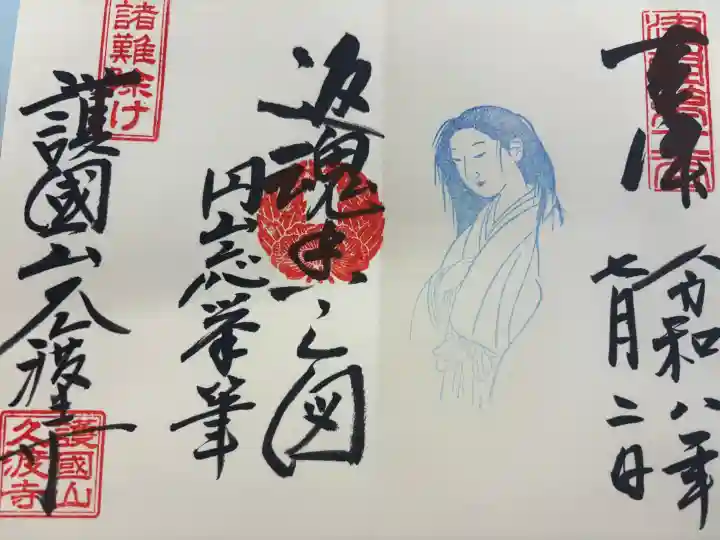 令和八年
七月二日
返魂香之図
円山応挙筆
諸難除け
護國山久渡寺
護國山
久渡寺